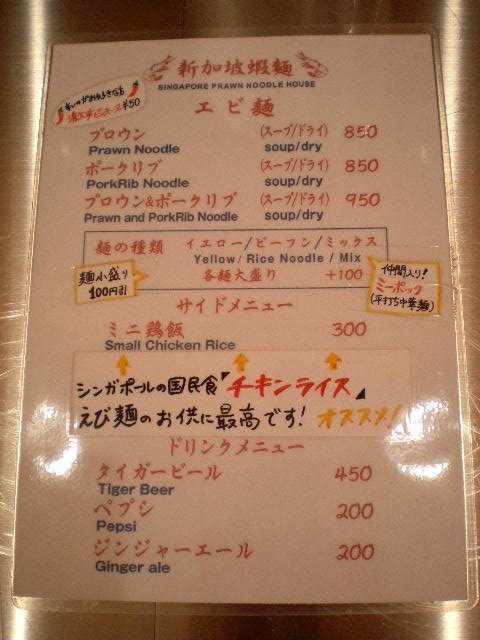 新加坡蝦麵
SINGAPORE PRAWN NOODLE HOUSE
辛いのがお好きな方
¥50
エビ麺
プロウン (スープ/ドライ) 850
Prawn Noodle soup/dry
ポークリブ (スープ/ドライ) 850
PorkRib Noodle soup/dry
プロウン&ポークリブ (スープ/ドライ) 950
Prawn and PorkRib Noodle soup/dry
麺の種類 イエロー/ビーフン/ミックス
Yellow/Rice Noodle/Mix
各麺大盛り +100
麺小盛り
100円引
仲間入り!
ミーポック
(平打ち中華麺)
サイドメニュー
ミニ鶏飯 300
Small Chicken Rice
シンガポールの国民食「チキンライス」
えび麺のお供に最高です! オススメ!
ドリンクメニュー
タイガービール 450
Tiger Beer
ペプシ 200
Pepsi
ジンジャーエール 200
Ginger ale